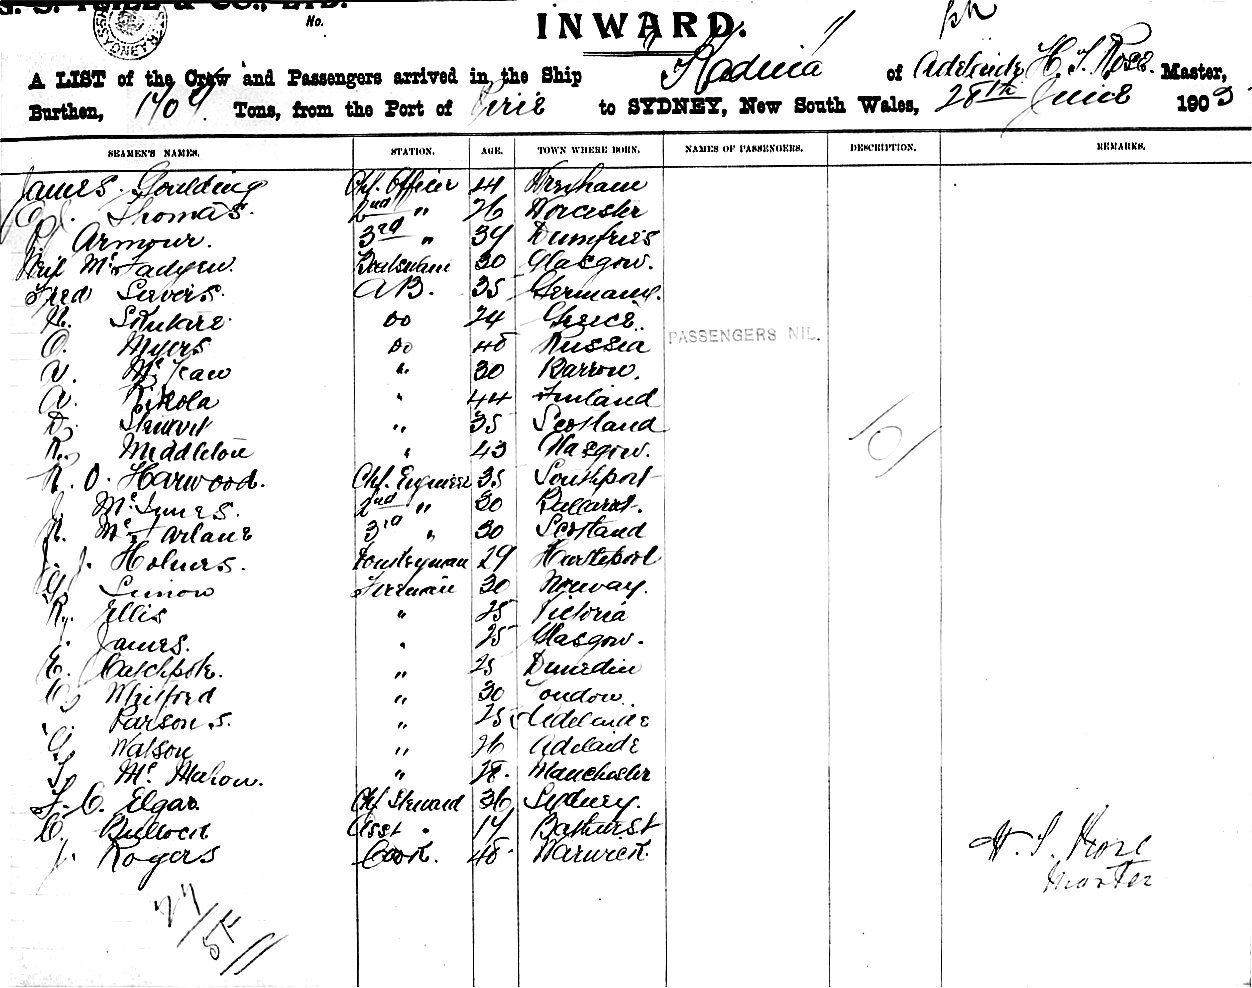 INWARD.
No.
A LIST of the Crew and Passengers arrived in the Ship Kadina of Adelaide H. S. Rose Master,
Burthen, Tons, from the Port of Pirie to SYDNEY, New South Wales, 28th June 190
SEAMEN'S NAMES. STATION. AGE. TOWN WHERE BORN. NAMES OF PASSENGERS. DESCRIPTION. REMARKS.
James Goulding Chf. Officer 44 Wrexham
Thomas. 2nd " 26 Worcester
Armour. 3rd " 39 Dumfries
Neil McFadyen. 30 Glasgow.
Fred A.B. 35 Germany.
Do 24 Greece.
O. Myers Do 48 Russia
PASSENGERS NIL.
McLean " 30 Barrow.
A. " 44 Finland
D. Stewart " 35 Scotland
R. Middleton " 43 Glasgow.
R. O. Harwood. Chf. Engineer 35 Southport
J. McInnes. 2nd " 30 Ballarat.
McFarlane 3rd " 30 Scotland
J. J. Holmes. Donkeyman 29 Hartlepool
Simon Fireman 30 Norway.
Ellis " 25 Victoria
James. " 25 Glasgow.
E. Catchpole. " 25 Dunedin
Whitford " 30 London.
Parsons. " 25 Adelaide
Watson " 26 Adelaide
McMahon. " 28. Manchester
F. C. Elgar. Chf Steward 36 Sydney.
C. Bullock Asst " 17 Bathurst
J. Rogers Cook. 48. Warwick.
H. S. Rose
Master